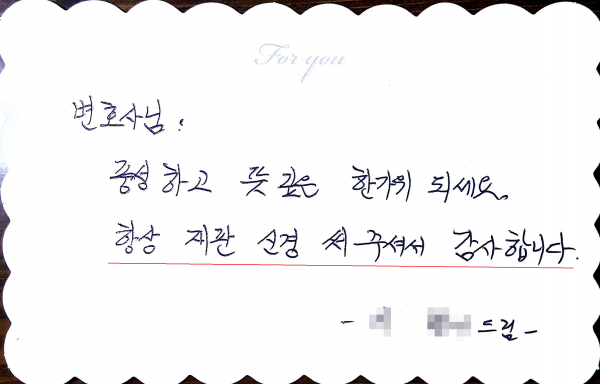 For you
변호사님:
풍성하고 뜻 깊은 한가위 되세요.
항상 재판 신경 써 주셔서 감사합니다.
- 드림 -